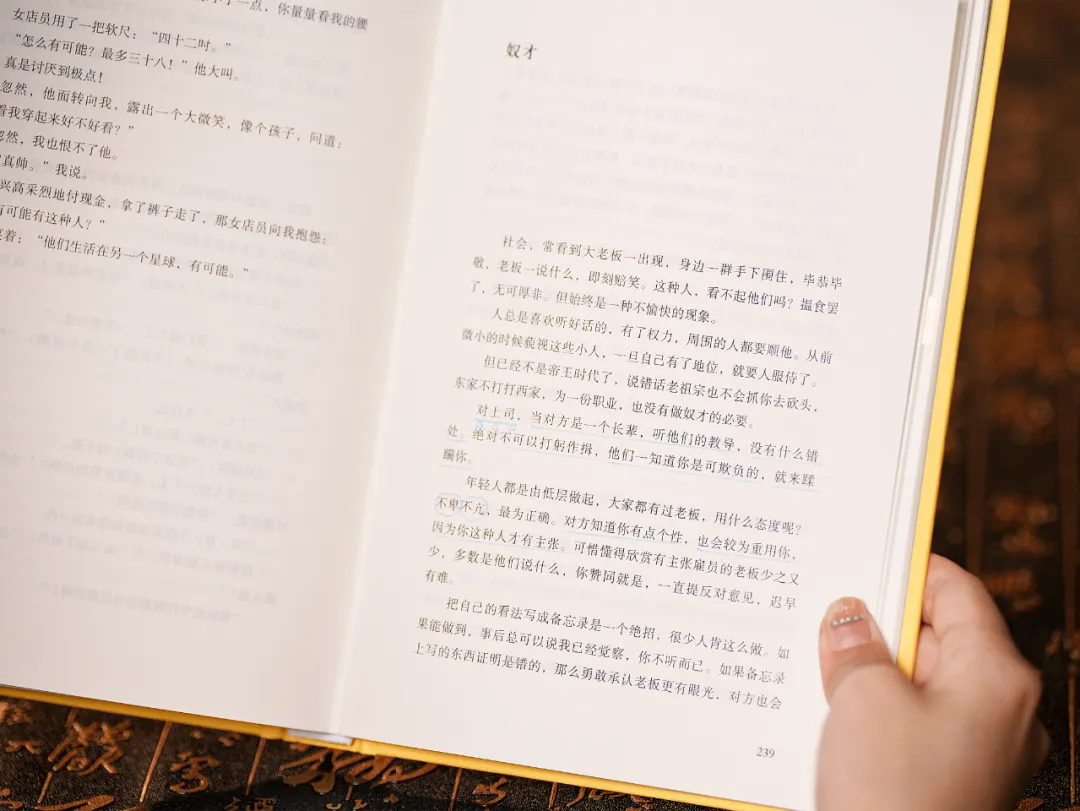 一点，你量量看我的腰
女店员用了一把软尺：“四十二吋。”
“怎么有可能？最多三十八！”他大叫。
真是讨厌到极点！
忽然，他面转向我，露出一个大微笑，像个孩子，问道：
看我穿起来好不好看？”
忽然，我也恨不了他。
“真帅。”我说。
兴高采烈地付现金，拿了裤子走了，那女店员向我抱怨：
有可能有这种人？”
笑着：“他们生活在另一个星球，有可能。”
奴才
社会，常看到大老板一出现，身边一群手下围住，毕恭毕
敬，老板一说什么，即刻赔笑。这种人，看不起他们吗？揾食罢
了，无可厚非。但始终是一种不愉快的现象。
人总是喜欢听好话的，有了权力，周围的人都要顺他。从前
微小的时候藐视这些小人，一旦自己有了地位，就要人服侍了。
但已经不是帝王时代了，说错话老祖宗也不会抓你去砍头，
东家不打打西家，为一份职业，也没有做奴才的必要。
对上司，当对方是一个长辈，听他们的教导，没有什么错
处。绝对不可以打躬作揖，他们一知道你是可欺负的，就来蹂
躏你。
年轻人都是由低层做起，大家都有过老板，用什么态度呢？
不卑不亢，最为正确。对方知道你有点个性，也会较为重用你，
因为你这种人才有主张。可惜懂得欣赏有主张雇员的老板少之又
少，多数是他们说什么，你赞同就是，一直提反对意见，迟早
有难。
把自己的看法写成备忘录是一个绝招，很少人肯这么做。如
果能做到，事后总可以说我已经觉察，你不听而已。如果备忘录
上写的东西证明是错的，那么勇敢承认老板更有眼光，对方也会
239